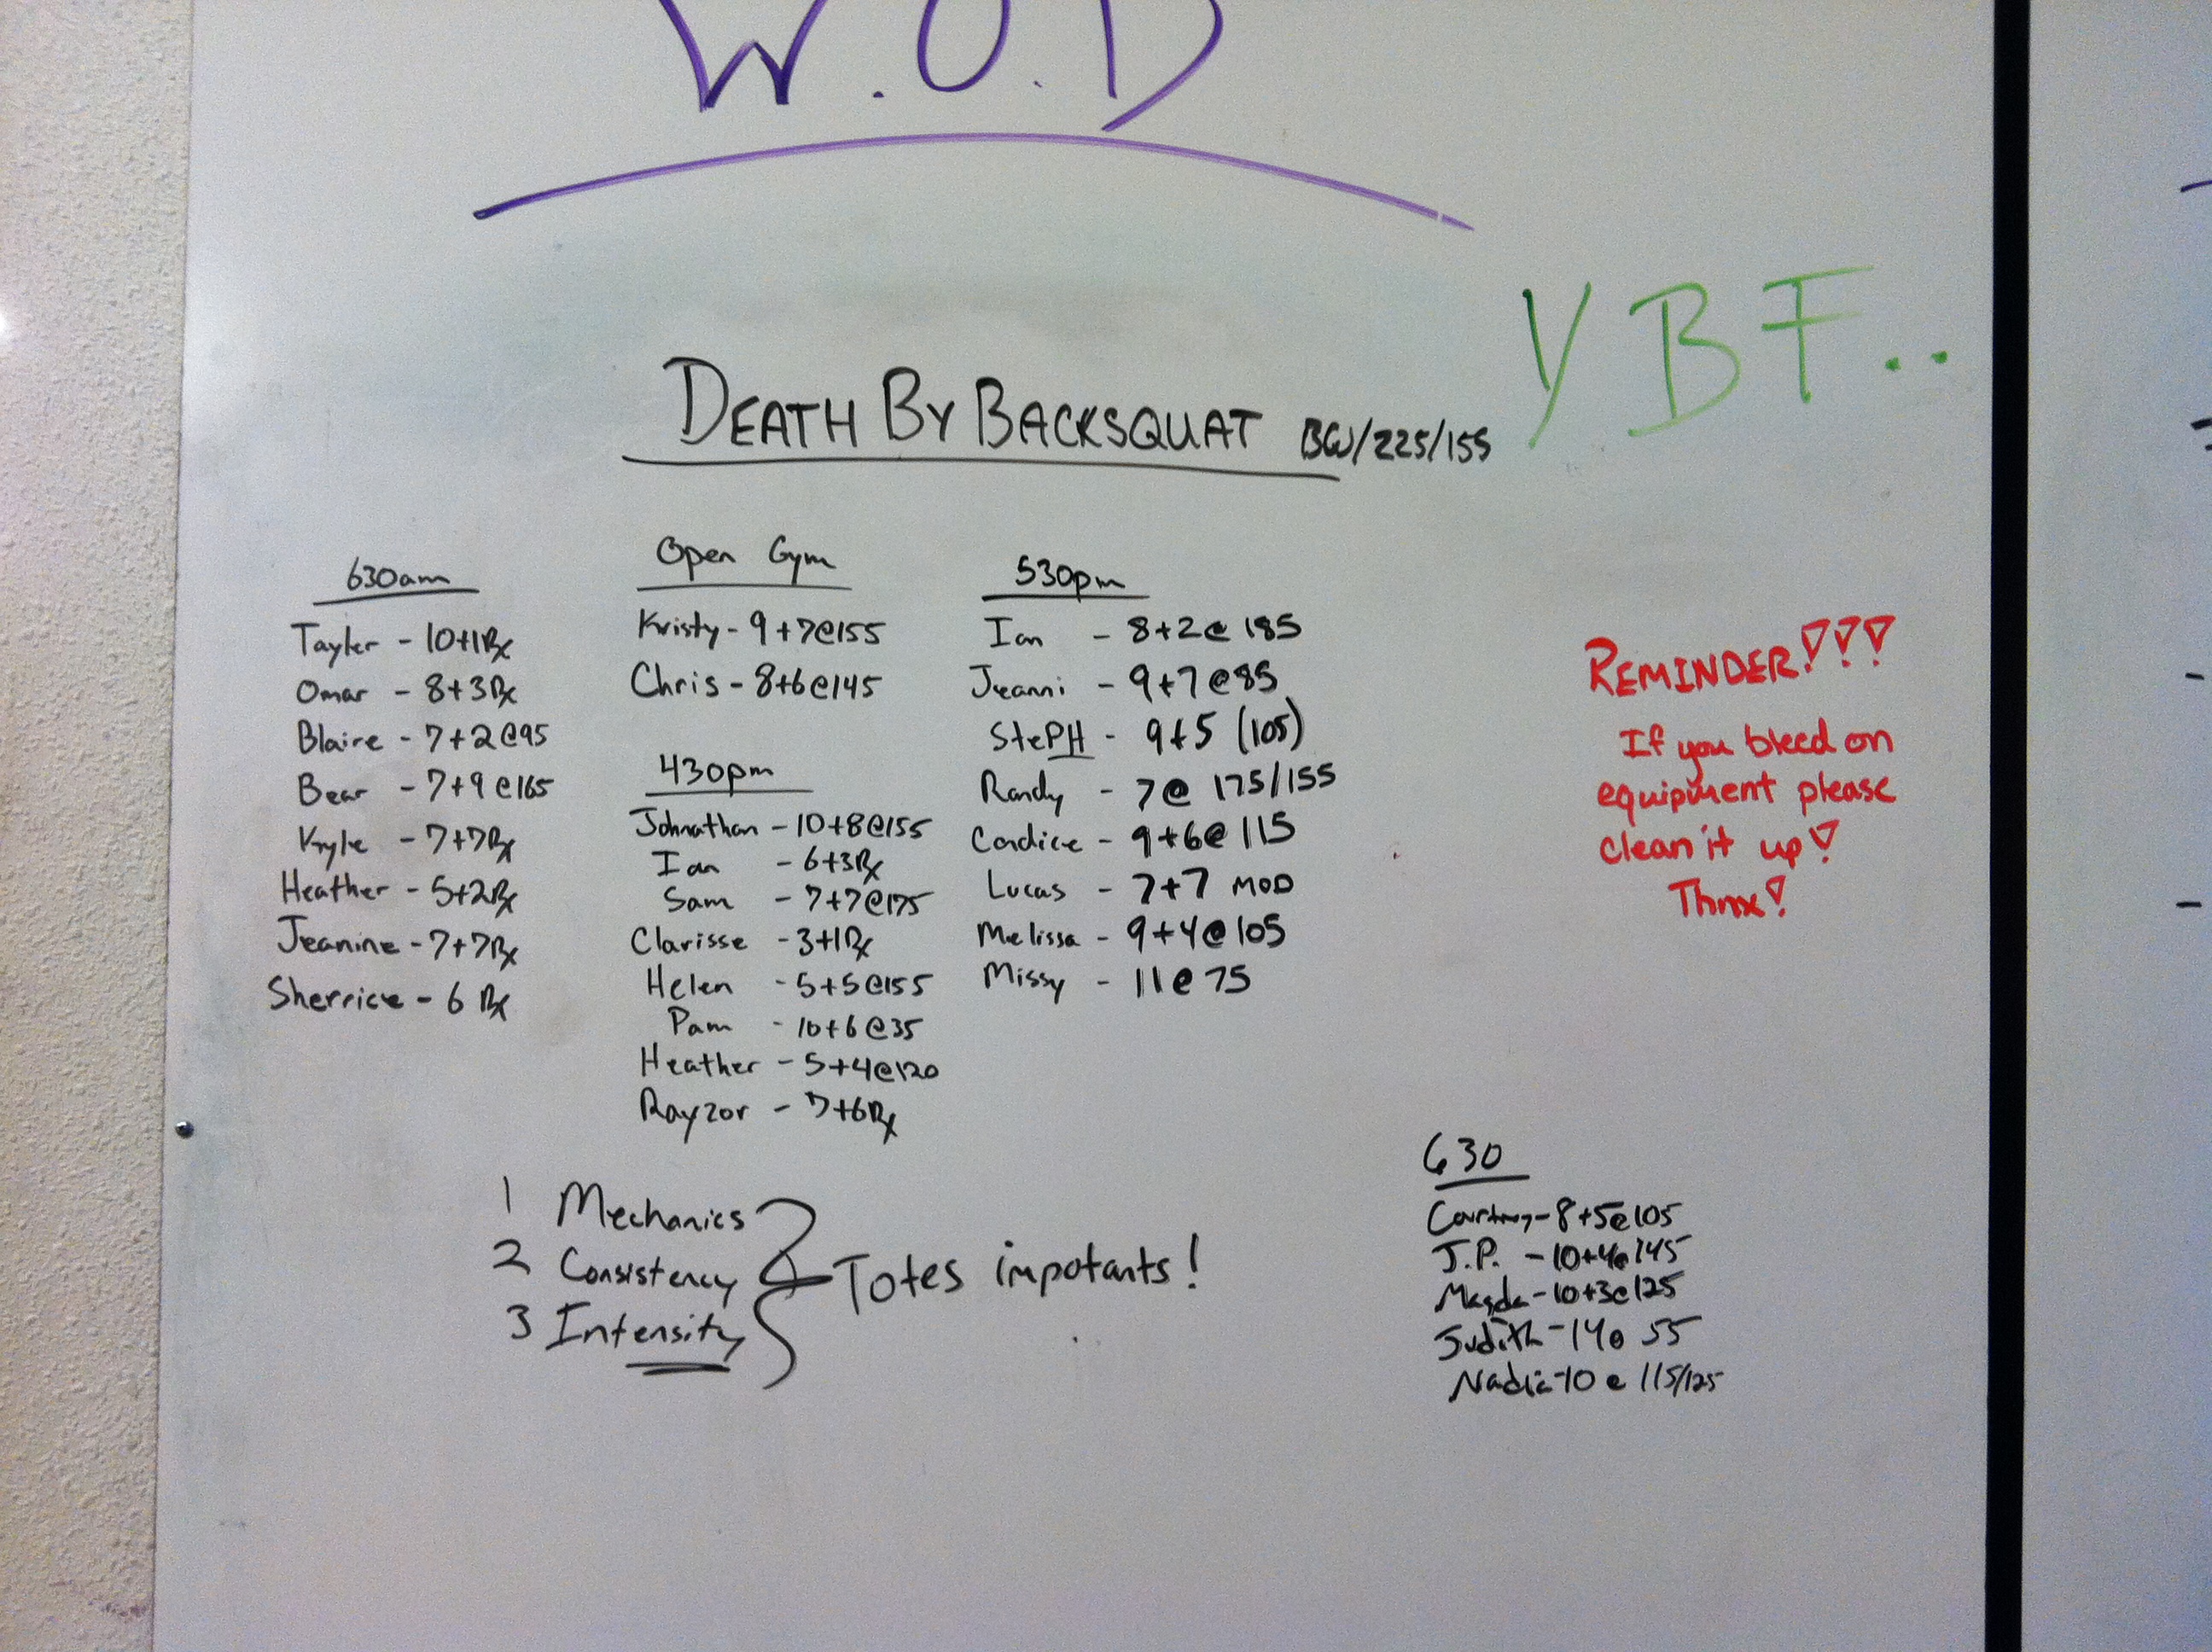 W.O.D
YBF..
DEATH BY BACKSQUAT BW/225/155
630am
Tayler - 10+1Rx
Omar - 8+3Rx
Blaire - 7+2@95
Bear - 7+9@165
Kyle - 7+7Rx
Heather - 5+2Rx
Jeanine - 7+7Rx
Sherrice - 6 Rx
Open Gym
Kristy - 9+7@155
Chris - 8+6@145
430pm
Johnathan - 10+8@155
Ian - 6+3Rx
Sam - 7+7@175
Clarisse - 3+1Rx
Helen - 5+5@155
Pam - 10+6@35
Heather - 5+4@120
Rayzor - 7+6Rx
530pm
Ian - 8+2@185
Jeanni - 9+7@85
StePH - 9+5 (105)
Randy - 7@ 175/155
Candice - 9+6@ 115
Lucas - 7+7 MOD
Melissa - 9+4@105
Missy - 11@75
REMINDER!!!
If you bleed on
equipment please
clean it up!
Thnx!
1 Mechanics
2 Consistency
3 Intensity
Totes impotants!
630
Courtney - 8+5@105
J.P. - 10+4@145
Magda - 10+3@125
Judith - 14@ 55
Nadia - 10 @ 115/125